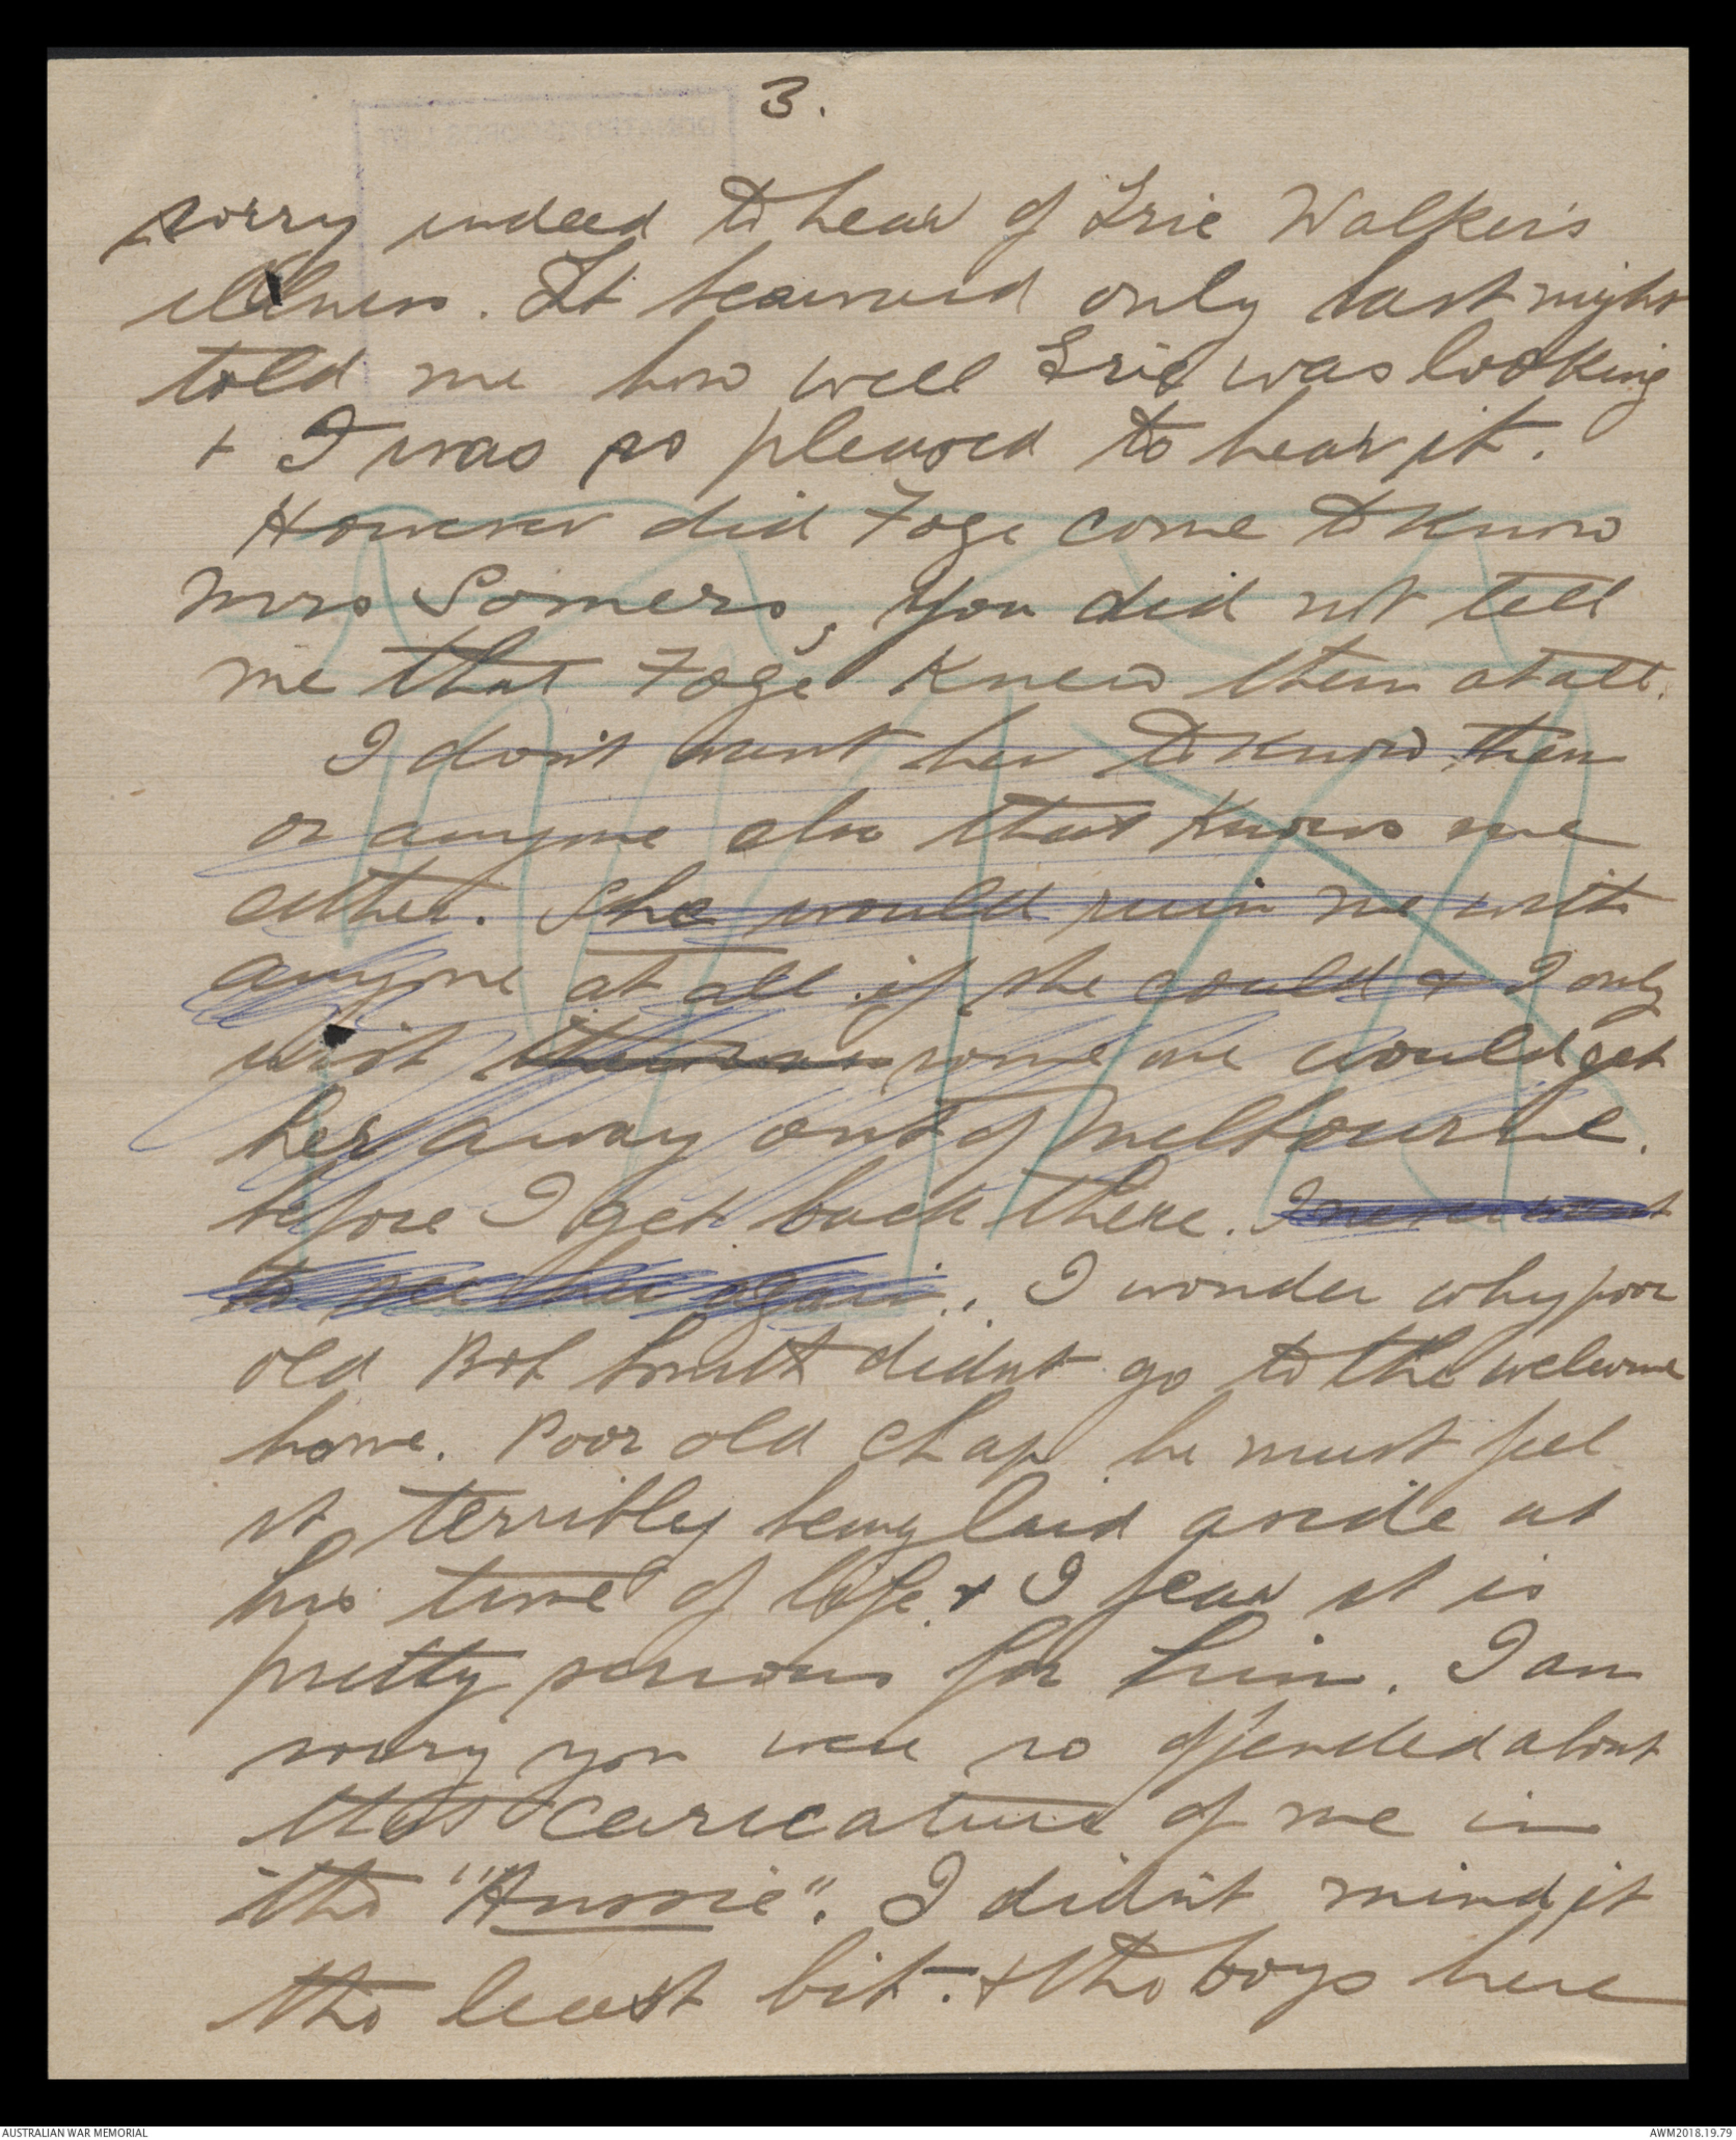 3.
sorry indeed to hear of Irie Walker's
illness. Lt only last night
told me how well Irie was looking
+ I was so pleased to hear it.
However did Foge come to know
Mrs Somers, you did not tell
me that Foge knew them at all.
I don't want her to know them
or anyone else that knows me
either. She would ruin me with
anyone at all if she could & I only
wish some one would get
her away out of Melbourne.
before I get back there. I never want
to see her again. I wonder why poor
old Bob Smith didnt go to the welcome
home. Poor old chap he must feel
it terribly being laid aside at
his time of life & I fear it is
pretty serious for him. I am
sorry you were so offended about
that caricature of me in
the "Aussie". I didn't mind it
the least bit. & the boys here
AUSTRALIAN WAR MEMORIAL
AWM2018.19.79